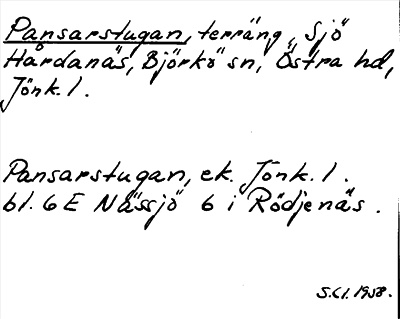 Pansarstugan, terräng, Sjö
Hårdanäs, Björkö sn, Östra hd,
Jönk. l.
Pansarstugan, ek. Jönk. l.
bl. 6E Nässjö 6 i Rödjenäs.
1958.